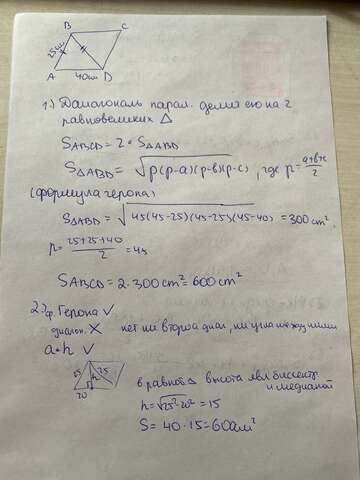 B C
25см
A 40см D
1.) Диагональ парал. делит его на 2
равновеликих Δ
SABCD = 2 · SΔABD
SΔABD = √p(p-a)(p-b)(p-c), где p = a+b+c/2
(формула герона)
SΔABD = √45(45-25)(45-25)(45-40) = 300 см²,
p = 25+25+40/2 = 45
SABCD = 2·300см² = 600 см²
2.) ф. Герона ✓
диагон. X нет ни второй диаг, ни угла между ними
a·h ✓
25 25
h
20
в равноб Δ высота явл биссектр
и медианой
h = √25²-20² = 15
S = 40·15 = 600см²